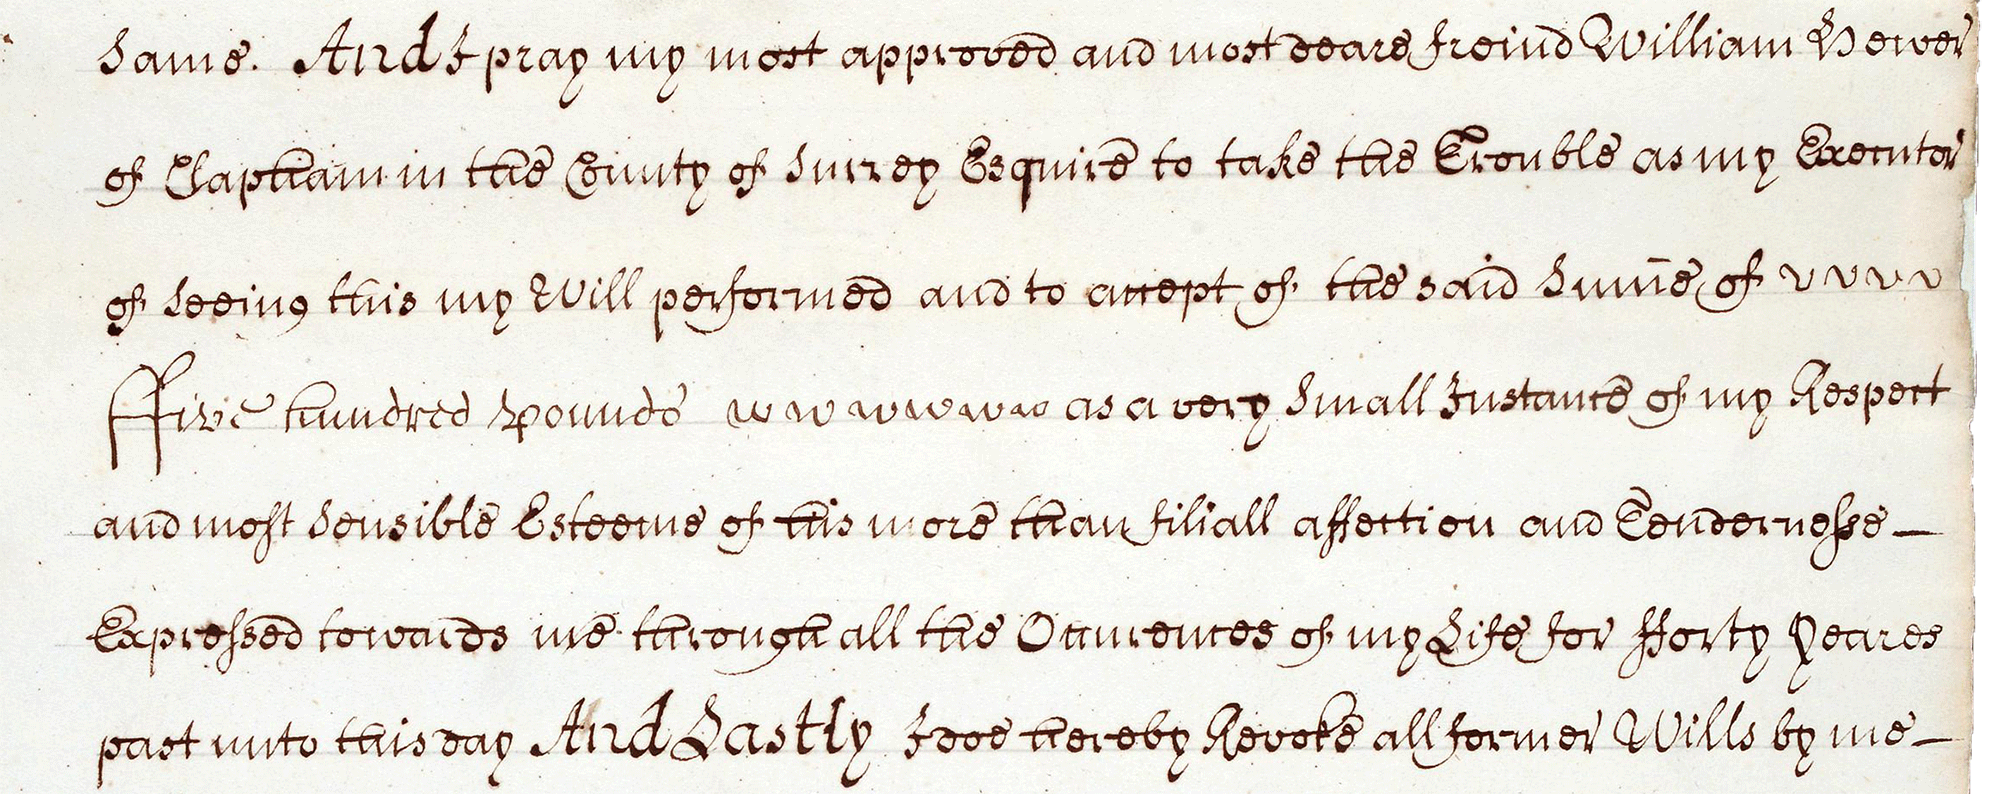 same. And I pray my most approved and most deare freind William Hewer
of Clapham in the County of Surrey Esquire to take the Trouble as my Executor
of seeing this my Will performed and to accept of the said Summe of
ffive hundred Pounds as a very small Instance of my Respect
and most sensible Esteeme of his more than filiall affection and Tendernesse —
Expressed towards me through all the Occurences of my Life for fforty yeares
past unto this day And Lastly I doe hereby Revoke all former Wills by me —